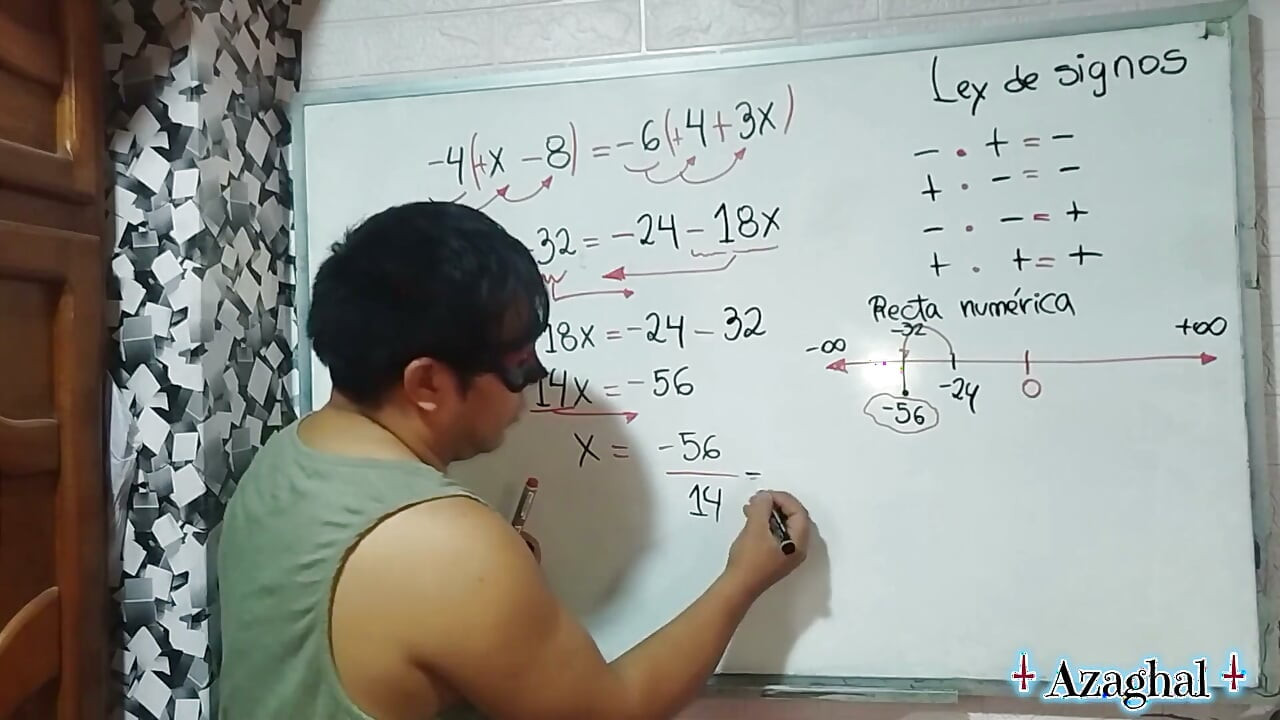 -4(+x -8) = -6(+4+3x)
32 = -24 - 18x
18x = -24 - 32
14x = -56
x = -56
14 =
Ley de signos
- · + = -
+ · - = -
- · - = +
+ · + = +
Recta numérica
-∞ -32 +∞
-24 0
-56
Azaghal